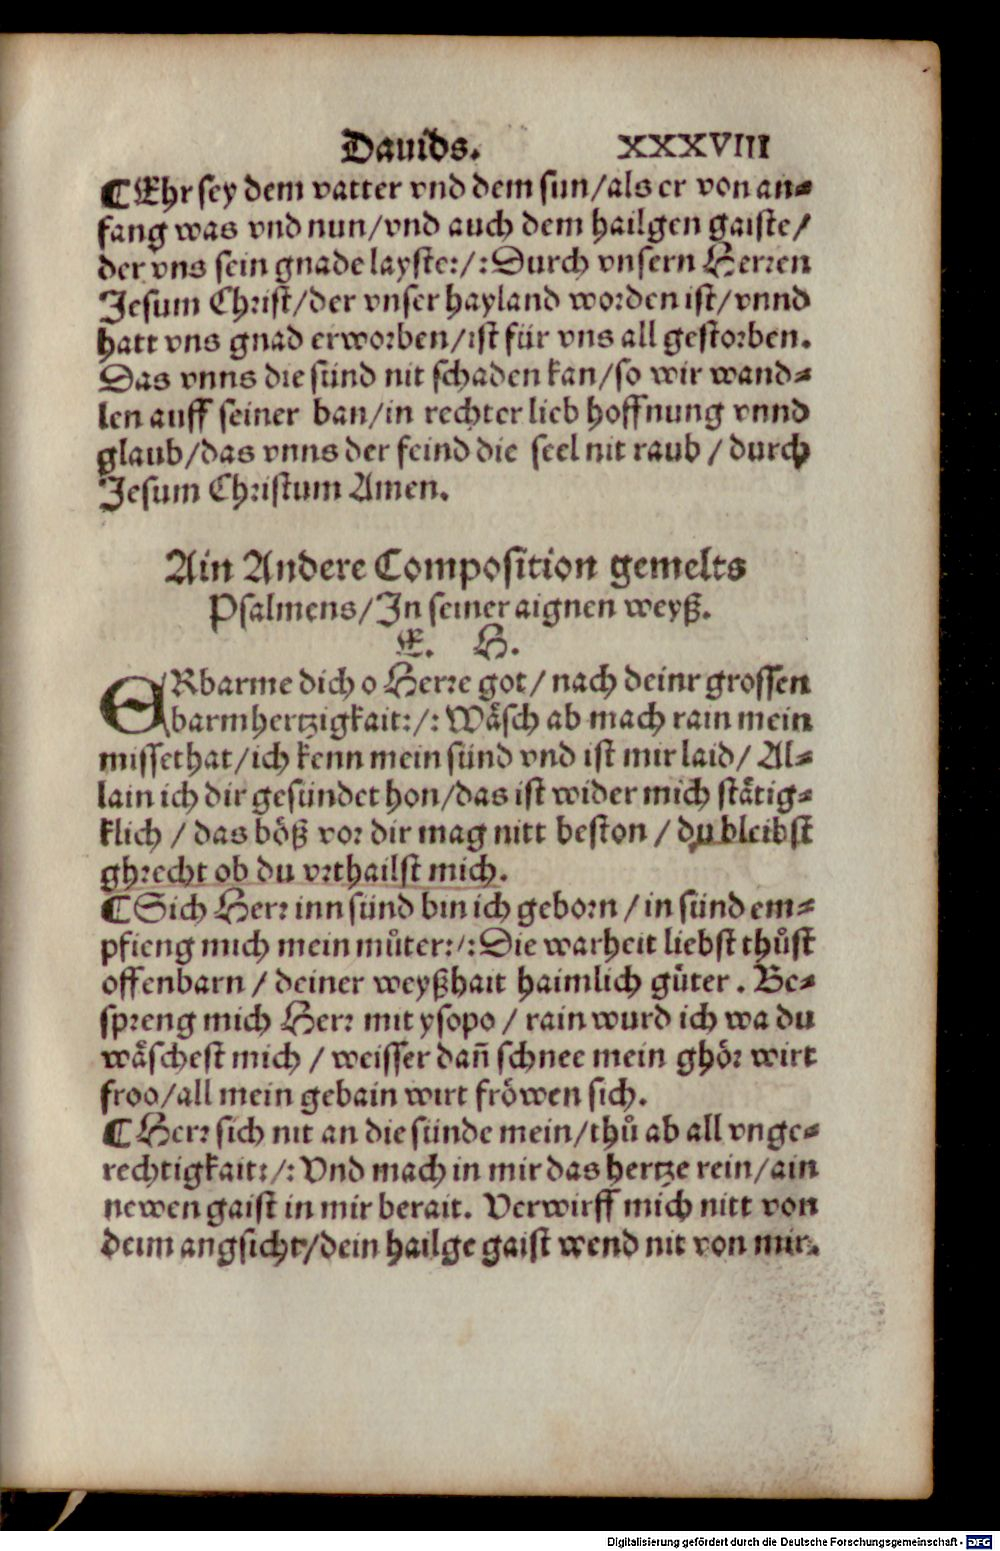 Dauids. XXXVIII
¶Ehr sey dem vatter vnd dem sun/als er von an⸗
fang was vnd nun/vnd auch dem hailgen gaiste/
der vns sein gnade layste:/:Durch vnsern Herren
Jesum Christ/der vnser hayland worden ist/vnnd
hatt vns gnad erworben/ist für vns all gestorben.
Das vnns die sünd nit schaden kan/so wir wand⸗
len auff seiner ban/in rechter lieb hoffnung vnnd
glaub/das vnns der feind die seel nit raub / durch
Jesum Christum Amen.
Ain Andere Composition gemelts
Psalmens/In seiner aignen weyß.
E. H.
ERbarme dich o Herre got/ nach deinr grossen
barmhertzigkait:/: Wäsch ab mach rain mein
missethat/ich kenn mein sünd vnd ist mir laid/ Al⸗
lain ich dir gesündet hon/das ist wider mich stätig⸗
klich / das böß vor dir mag nitt beston / du bleibst
ghrecht ob du vrthailst mich.
¶Sich Herr inn sünd bin ich geborn / in sünd em⸗
pfieng mich mein můter:/:Die warheit liebst thůst
offenbarn / deiner weyßhait haimlich gůter. Be⸗
spreng mich Herr mit ysopo / rain wurd ich wa du
wäschest mich / weisser dañ schnee mein ghör wirt
froo/all mein gebain wirt fröwen sich.
¶Herr sich nit an die sünde mein/thů ab all vnge⸗
rechtigkait:/: Vnd mach in mir das hertze rein/ain
newen gaist in mir berait. Verwirff mich nitt von
deim angsicht/dein hailge gaist wend nit von mir.
Digitalisierung gefördert durch die Deutsche Forschungsgemeinschaft - DFG